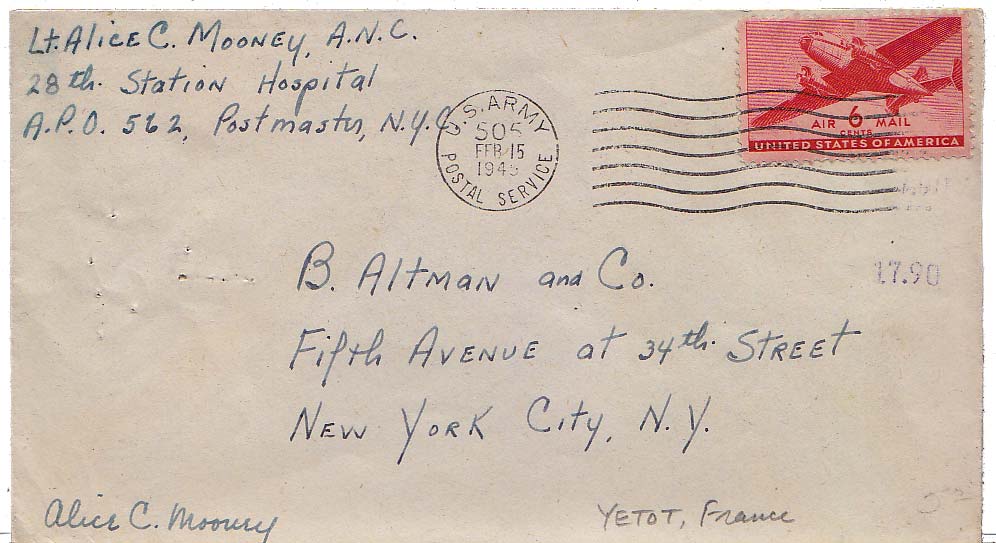 Lt. Alice C. Mooney, A.N.C.
28th. Station Hospital
A.P.O. 562, Postmaster, N.Y.C.
U.S. ARMY
505
FEB 15
1945
POSTAL SERVICE
AIR 6 MAIL
CENTS
UNITED STATES OF AMERICA
17.90
B. Altman and Co.
Fifth Avenue at 34th. Street
New York City, N.Y.
Alice C. Mooney
Yetot, France